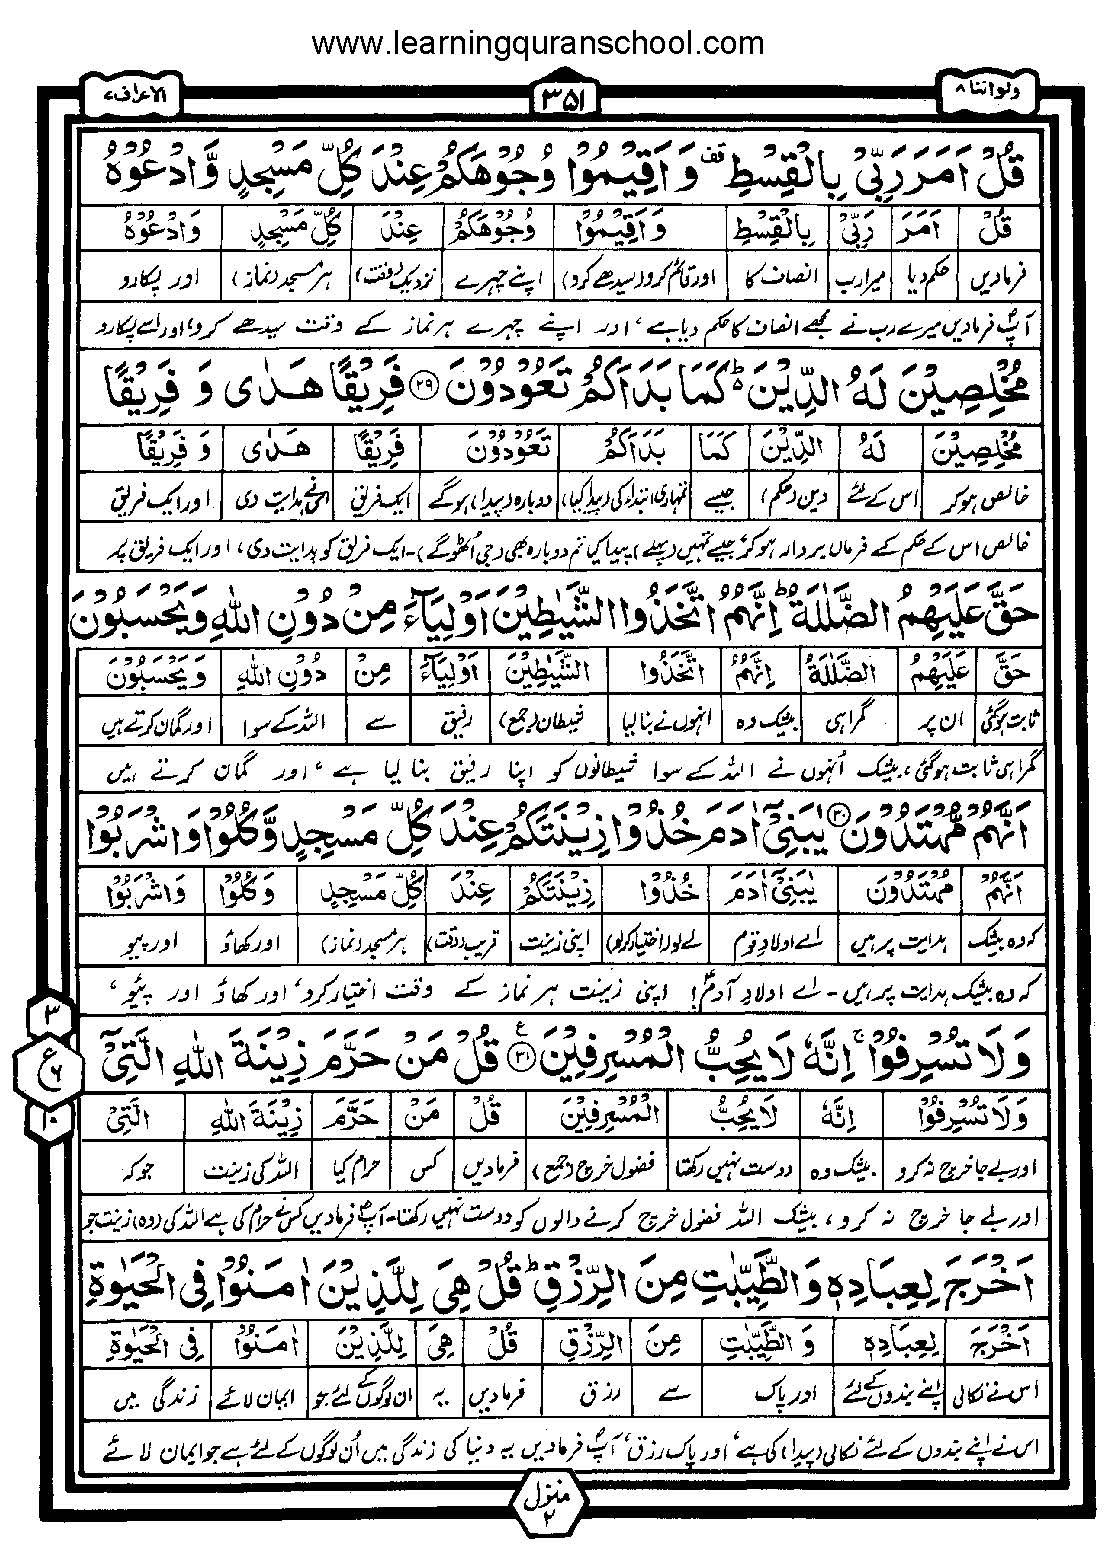 www.learningquranschool.com
ولواننا ۸
۳۵۱
الاعراف ۷
قُلْ اَمَرَ رَبِّیْ بِالْقِسْطِ قف وَ اَقِیْمُوْا وُجُوْهَكُمْ عِنْدَ كُلِّ مَسْجِدٍ وَّ ادْعُوْهُ
قُلْ اَمَرَ رَبِّیْ بِالْقِسْطِ وَ اَقِیْمُوْا وُجُوْهَكُمْ عِنْدَ كُلِّ مَسْجِدٍ وَ ادْعُوْهُ
فرمادیں حکم دیا میرا رب انصاف کا اور قائم کرو (سیدھے کرو) اپنے چہرے نزدیک (وقت) ہر مسجد (نماز) اور پکارو
آپؐ فرمادیں میرے رب نے مجھے انصاف کا حکم دیا ہے ، اور اپنے چہرے ہر نماز کے وقت سیدھے کرو، اور اسے پکارو
مُخْلِصِیْنَ لَهُ الدِّیْنَ ؕ كَمَا بَدَاَكُمْ تَعُوْدُوْنَ ۲۹ فَرِیْقًا هَدٰی وَ فَرِیْقًا
مُخْلِصِیْنَ لَهُ الدِّیْنَ كَمَا بَدَاَكُمْ تَعُوْدُوْنَ فَرِیْقًا هَدٰی وَ فَرِیْقًا
خالص ہوکر اس کے لئے دین (حکم) جیسے تمہاری ابتداء کی (پیدا کیا) دوبارہ (پیدا) ہوگے ایک فریق اسنے ہدایت دی اور ایک فریق
خالص اس کے حکم کے فرماں بردار ہوکر، جیسے تمہیں (پہلے) پیدا کیا تم دوبارہ بھی (جی اٹھوگے)۔ ایک فریق کو ہدایت دی، اور ایک فریق پر
حَقَّ عَلَیْهِمُ الضَّلٰلَةُ ؕ اِنَّهُمُ اتَّخَذُوا الشَّیٰطِیْنَ اَوْلِیَآءَ مِنْ دُوْنِ اللّٰهِ وَ یَحْسَبُوْنَ
حَقَّ عَلَیْهِمُ الضَّلٰلَةُ اِنَّهُمُ اتَّخَذُوا الشَّیٰطِیْنَ اَوْلِیَآءَ مِنْ دُوْنِ اللّٰهِ وَ یَحْسَبُوْنَ
ثابت ہوگئی ان پر گمراہی بیشک وہ انہوں نے بنا لیا شیطان (جمع) رفیق سے اللہ کے سوا اور گمان کرتے ہیں
گمراہی ثابت ہوگئی، بیشک اُنہوں نے اللہ کے سوا شیطانوں کو اپنا رفیق بنا لیا ہے ، اور گمان کرتے ہیں
اَنَّهُمْ مُّهْتَدُوْنَ ۳۰ یٰبَنِیْۤ اٰدَمَ خُذُوْا زِیْنَتَكُمْ عِنْدَ كُلِّ مَسْجِدٍ وَّ كُلُوْا وَ اشْرَبُوْا
اَنَّهُمْ مُهْتَدُوْنَ یٰبَنِیْۤ اٰدَمَ خُذُوْا زِیْنَتَكُمْ عِنْدَ كُلِّ مَسْجِدٍ وَ كُلُوْا وَ اشْرَبُوْا
کہ وہ بیشک ہدایت پر ہیں اے اولادِ قوم لے لو (اختیار کرلو) اپنی زینت قریب (وقت) ہر مسجد (نماز) اور کھاؤ اور پیو
کہ وہ بیشک ہدایت پر ہیں۔ اے اولادِ آدمؑ! اپنی زینت ہر نماز کے وقت اختیار کرو، اور کھاؤ اور پیئو،
۳
ع
۶
۱۰
وَ لَا تُسْرِفُوْا ۚ اِنَّهٗ لَا یُحِبُّ الْمُسْرِفِیْنَ ۳۱ ع قُلْ مَنْ حَرَّمَ زِیْنَةَ اللّٰهِ الَّتِیْۤ
وَ لَا تُسْرِفُوْا اِنَّهٗ لَا یُحِبُّ الْمُسْرِفِیْنَ قُلْ مَنْ حَرَّمَ زِیْنَةَ اللّٰهِ الَّتِیْۤ
اور بے جا خرچ نہ کرو بیشک وہ دوست نہیں رکھتا فضول خرچ (جمع) فرمادیں کس حرام کیا اللہ کی زینت جوکہ
اور بے جا خرچ نہ کرو ، بیشک اللہ فضول خرچ کرنے والوں کو دوست نہیں رکھتا۔ آپؐ فرمادیں کس نے حرام کی ہے اللہ کی (وہ) زینت جو
اَخْرَجَ لِعِبَادِهٖ وَ الطَّیِّبٰتِ مِنَ الرِّزْقِ ؕ قُلْ هِیَ لِلَّذِیْنَ اٰمَنُوْا فِی الْحَیٰوةِ
اَخْرَجَ لِعِبَادِهٖ وَ الطَّیِّبٰتِ مِنَ الرِّزْقِ قُلْ هِیَ لِلَّذِیْنَ اٰمَنُوْا فِی الْحَیٰوةِ
اس نے نکالی اپنے بندوں کے لئے اور پاک سے رزق فرمادیں یہ ان لوگوں کے لئے جو ایمان لائے زندگی میں
اس نے اپنے بندوں کے لئے نکالی (پیدا) کی ہے، اور پاک رزق، آپؐ فرمادیں یہ دنیا کی زندگی میں اُن لوگوں کے لئے ہے جو ایمان لائے
منزل
۲